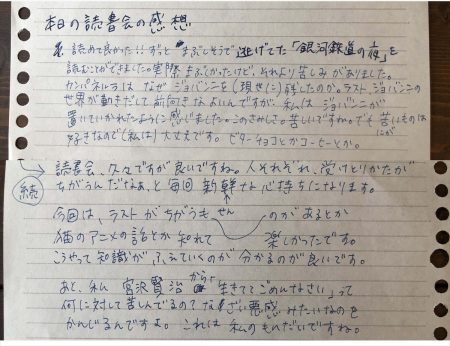 本日の読書会の感想
読めて良かった!!ずっとまぶしそうで逃げてた「銀河鉄道の夜」を
読むことができました。実際まぶしかったけど、それより苦しみがありました。
カンパネルラはなぜジョバンニを(現世に)残したのか。ラスト、ジョバンニの
世界が動きだして前向きなよいんですが、私はジョバンニが
置いていかれたように感じました。このさみしさ。苦しいですね。でも苦いものは
にが
好きなので(私は)大丈夫です。ビターチョコとかコーヒーとか。
続
読書会、久々ですが良いですね。人それぞれ、受けとりかたが
ちがうんだなぁ、と毎回新鮮な心持ちになります。
せん
今回は、ラストがちがうも のがあるとか
猫のアニメの話とか知れて 楽しかったです。
こうやって知識がふえていくのが分かるのが良いです。
あと、私 宮沢賢治から「生きててごめんなさい」って
何に対して苦しんでるの?な ざい悪感みたいなのを
かんじるんですよ。これは私のもんだいですね。